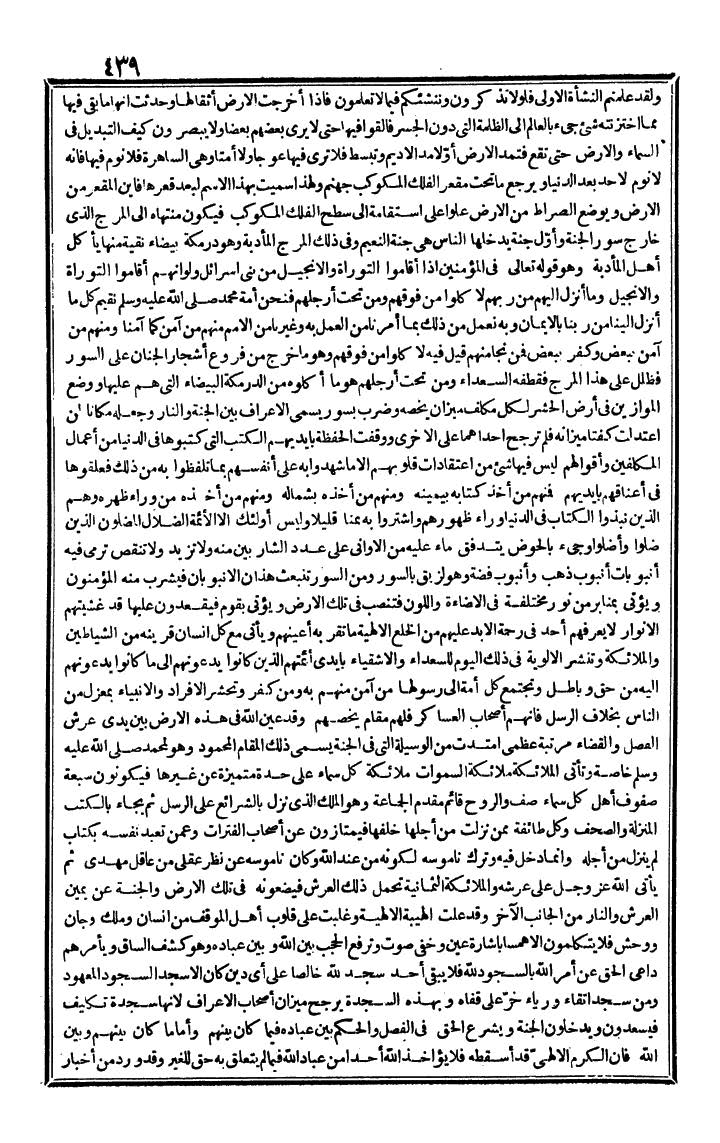 ٤٣٩
ولقد علمتم النشأة الاولى فلولا تذكرون وننشئكم فيما لا تعلمون فاذا أخرجت الارض أثقالها وحدثت انها ما بقى فيها
مما اختزنته شئ جىء بالعالم الى الظلمة التى دون الجسر فالقوا فيها حتى لا يرى بعضهم بعضا ولا يبصرون كيف التبديل فى
السماء والارض حتى تقع فتمد الارض أوّلا مد الاديم وتبسط فلا ترى فيها عوجا ولا أمتا وهى الساهرة فلا نوم فيها فانه
لا نوم لاحد بعد الدنيا ويرجع ما تحت مقعر الفلك المكوكب جهنم ولهذا سميت بهذا الاسم لبعد قعرها فاين المقعر من
الارض ويوضع الصراط من الارض علوا على استقامة الى سطح الفلك المكوكب فيكون منتهاه الى المرج الذى
خارج سور الجنة وأوّل جنة يدخلها الناس هى جنة النعيم وفى ذلك المرج المأدبة وهو درمكة بيضاء نقية منها يأكل
أهل المأدبة وهو قوله تعالى فى المؤمنين اذا أقاموا التوراة والانجيل من بنى اسرائل ولوانهم أقاموا التوراة
والانجيل وما أنزل اليهم من ربهم لا كلوا من فوقهم ومن تحت أرجلهم فنحن أمة محمد صلى الله عليه وسلم نقيم كل ما
أنزل الينا من ربنا بالايمان وبه نعمل من ذلك بما أمرنا من العمل به وغيرنا من الامم منهم من آمن كما آمنا ومنهم من
آمن ببعض وكفر ببعض فمن نجا منهم قيل فيه لا كلوا من فوقهم وهو ما خرج من فروع أشجار الجنان على السور
فظلل على هذا المرج فقطفه السعداء ومن تحت أرجلهم هو ما أكلوه من الدرمكة البيضاء التى هم عليها ووضع
الموازين فى أرض الحشر لكل مكلف ميزان يخصه وضرب بسور يسمى الاعراف بين الجنة والنار وجعله مكانا لمن
اعتدلت كفتا ميزانه فلم ترجح احداهما على الاخرى ووقفت الحفظة بايديهم الكتب التى كتبوها فى الدنيا من أعمال
المكلفين وأقوالهم ليس فيها شئ من اعتقادات قلوبهم الا ما شهدوا به على أنفسهم بما تلفظوا به من ذلك فعلقوها
فى أعناقهم بايديهم فمنهم من أخذ كتابه بيمينه ومنهم من أخذه بشماله ومنهم من أخذه من وراء ظهره وهم
الذين نبذوا الكتاب فى الدنيا وراء ظهورهم واشتروا به ثمنا قليلا وليس أولئك الا الأئمة الضلال المضلون الذين
ضلوا وأضلوا وجىء بالحوض يتدفق ماء عليه من الاوانى على عدد الشاربين منه ولا تزيد ولا تنقص ترمى فيه
أنبوبات أنبوب ذهب وأنبوب فضة وهو لزيق بالسور ومن السور تنبعث هذان الانبوبان فيشرب منه المؤمنون
ويؤتى بمنابر من نور مختلفة فى الاضاءة واللون فتنصب فى تلك الارض ويؤتى بقوم فيقعدون عليها قد غشيتهم
الانوار لا يعرفهم أحد فى رحمة الابد عليهم من الخلع الالهية ما تقر به أعينهم ويأتى مع كل انسان قرينه من الشياطين
والملائكة وتنشر الالوية فى ذلك اليوم للسعداء والاشقياء بايدى أئمتهم الذين كانوا يدعونهم الى ما كانوا يدعونهم
اليه من حق وباطل وتجتمع كل أمة الى رسولها من آمن منهم به ومن كفر وتحشر الافراد والانبياء بمعزل من
الناس بخلاف الرسل فانهم أصحاب العساكر فلهم مقام يخصهم وقد عين الله فى هذه الارض بين يدى عرش
الفصل والقضاء مرتبة عظمى امتدت من الوسيلة التى فى الجنة يسمى ذلك المقام المحمود وهو لمحمد صلى الله عليه
وسلم خاصة وتأتى الملائكة ملائكة السموات ملائكة كل سماء على حدة متميزة عن غيرها فيكونون سبعة
صفوف أهل كل سماء صف والروح قائم مقدم الجماعة وهو الملك الذى نزل بالشرائع على الرسل ثم يجاء بالكتب
المنزلة والصحف وكل طائفة ممن نزلت من أجلها خلفها فيمتازون عن أصحاب الفترات وعمن تعبد نفسه بكتاب
لم ينزل من أجله وانما دخل فيه وترك ناموسه لكونه من عند الله وكان ناموسه عن نظر عقلى من عاقل مهدى ثم
يأتى الله عز وجل على عرشه والملائكة الثمانية تحمل ذلك العرش فيضعونه فى تلك الارض والجنة عن يمين
العرش والنار من الجانب الآخر وقد علت الهيبة الالهية وغلبت على قلوب أهل الموقف من انسان وملك وجان
ووحش فلا يتكلمون الا همسا باشارة عين وخفى صوت وترفع الحجب بين الله وبين عباده وهو كشف الساق ويأمرهم
داعى الحق عن أمر الله بالسجود لله فلا يبقى أحد سجد لله خالصا على أى دين كان الا سجد السجود المعهود
ومن سجد اتقاء ورياء خرّ على قفاه وبهذه السجدة يرجح ميزان أصحاب الاعراف لانها سجدة تكليف
فيسعدون ويدخلون الجنة ويشرع الحق فى الفصل والحكم بين عباده فيما كان بينهم وأما ما كان بينهم وبين
الله فان الكرم الالهىّ قد أسقطه فلا يؤاخذ الله أحدا من عباد الله فيما لم يتعلق به حق للغير وقد ورد من أخبار